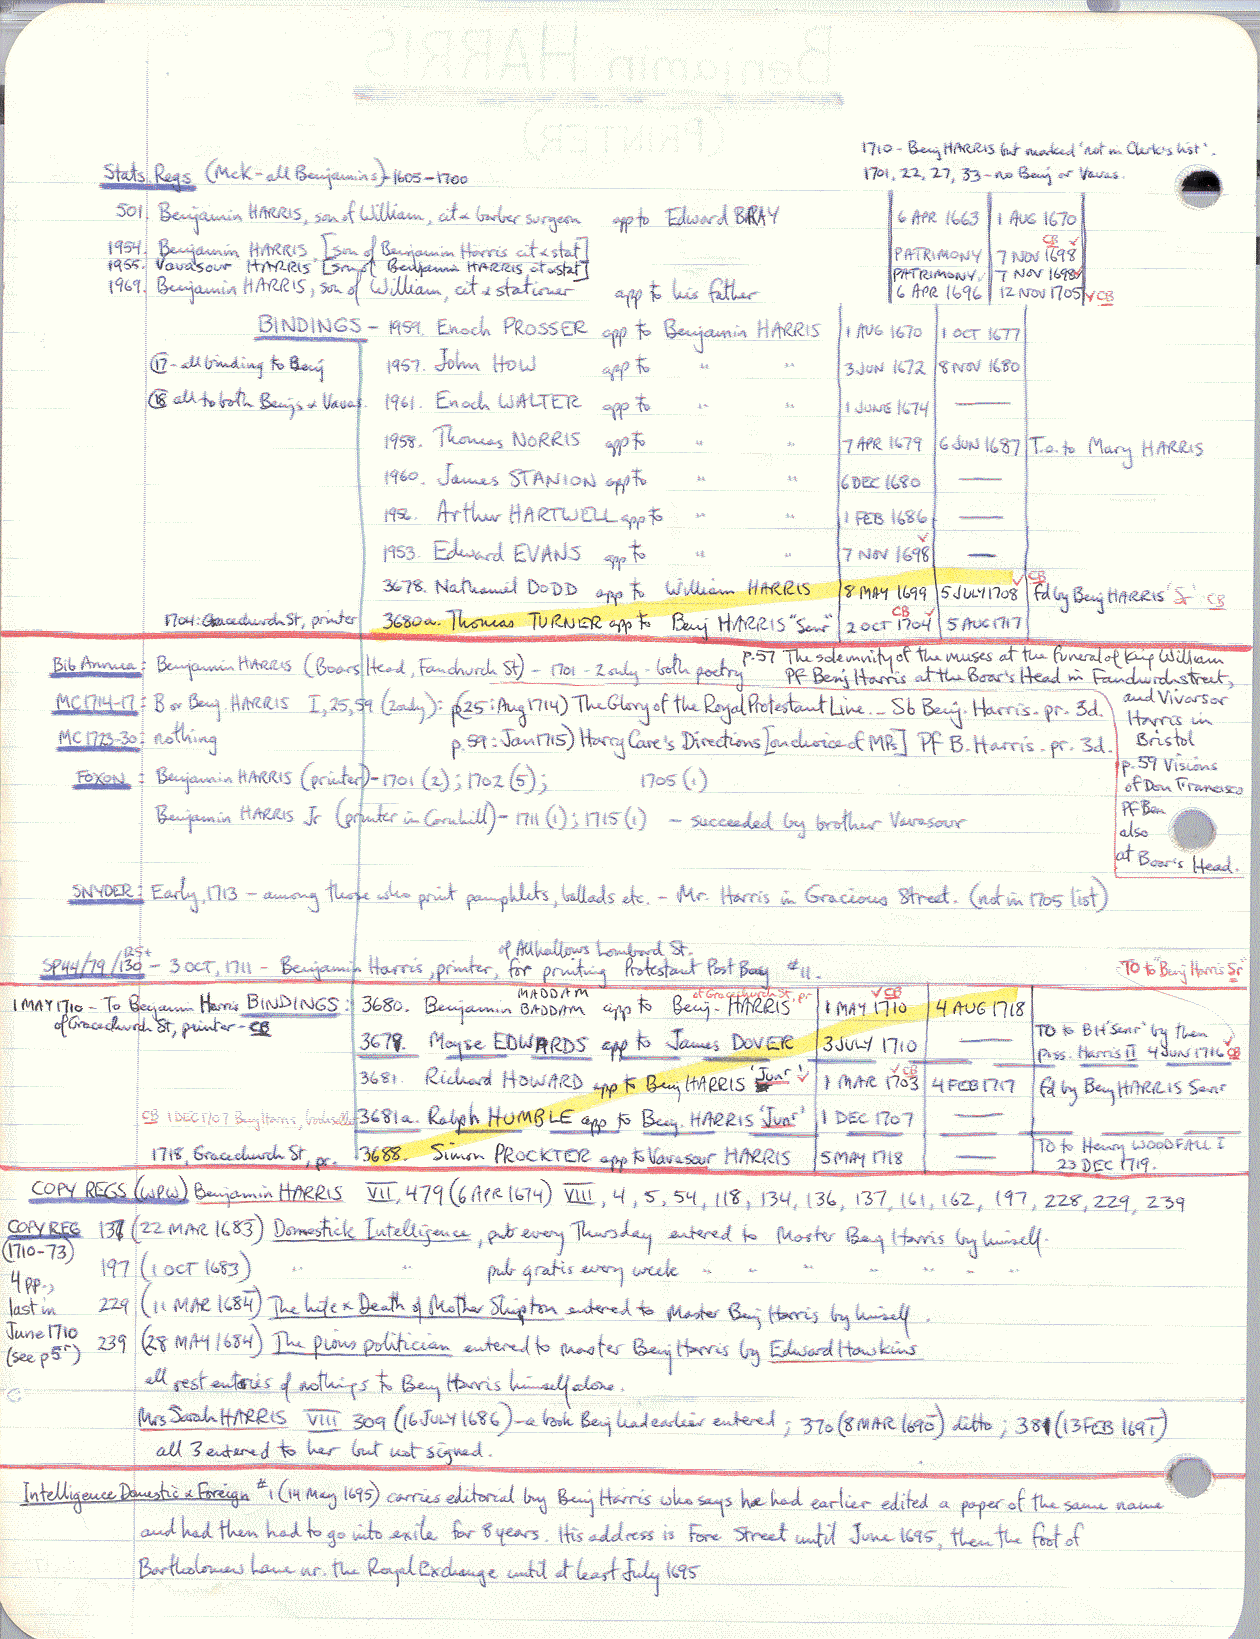 1710 - Benj HARRIS but marked 'not in Clerk's list'.
Stats. Regs (McK - all Benjamins) - 1605-1700
1701, 22, 27, 33 - no Benj or Vavas.
501. Benjamin HARRIS, son of William, cit & barber surgeon app to Edward BRAY 6 APR 1663 1 AUG 1670
1954. Benjamin HARRIS, [son of Benjamin Harris cit & stat] PATRIMONY 7 NOV 1698 CB ✓
1955. Vavasour HARRIS [son of Benjamin HARRIS cit & stat] PATRIMONY. 7 NOV 1698 ✓
1969. Benjamin HARRIS, son of William, cit & stationer app to his father 6 APR 1696 12 NOV 1705 ✓ CB
BINDINGS - 1959. Enoch PROSSER app to Benjamin HARRIS 1 AUG 1670 1 OCT 1677
17 - all binding to Benj 1957. John HOW app to " " 3 JUN 1672 8 NOV 1680
18 all to both Benjs & Vavas. 1961. Enoch WALTER app to " " 1 JUNE 1674 —
1958. Thomas NORRIS app to " " 7 APR 1679 6 JUN 1687 T.o. to Mary HARRIS
1960. James STANION app to " " 6 DEC 1680 —
1956. Arthur HARTWELL app to " " 1 FEB 1686 —
1953. Edward EVANS app to " " 7 NOV 1698 ✓ —
3678. Nathaniel DODD app to William HARRIS 8 MAY 1699 5 JULY 1708 ✓ CB fd by Benj HARRIS 'Sr' CB
1704: Gracechurch St, printer 3680a. Thomas TURNER app to Benj HARRIS "Senr" 2 OCT 1704 CB ✓ 5 AUG 1717
Bib Annua: Benjamin HARRIS (Boars Head, Fanchurch St) - 1701-2 only - both poetry p.57 The solemnity of the muses at the funeral of King William
PF Benj Harris at the Boar's Head in Fandwrchstreet,
and Vivarsor
Harris in
Bristol
p.59 Visions
of Don Francisco
PF Ben
also
at Boar's Head.
MC 1714-17: B or Benj. HARRIS I, 25, 59 (2 only): p.25: Aug 1714) The Glory of the Royal Protestant Line. - Sb Benj. Harris. pr. 3d.
MC 1723-30: nothing p.59: Jan 1715) Harry Care's Directions [on choice of MPs] PF B. Harris. pr. 3d.
FOXON: Benjamin HARRIS (printer) - 1701 (2); 1702 (5); 1705 (1)
Benjamin HARRIS Jr (printer in Cornhill) - 1711 (1); 1715 (1) - succeeded by brother Vavasour
SNYDER: Early, 1713 - among those who print pamphlets, ballads etc. - Mr. Harris in Gracious Street. (not in 1705 list)
of Allhallows Lombard St.
SP44/79/130 - 3 OCT, 1711 - Benjamin Harris, printer, for printing Protestant Post Boy #11.
TO to "Benj Harris Sr"
1 MAY 1710 - To Benjamin Harris of Gracechurch St, printer - CB
BINDINGS: 3680. Benjamin BADDAM MADDAM app to Benj. HARRIS of Gracechurch St, pr 1 MAY 1710 ✓ CB 4 AUG 1718
3679. Moyse EDWARDS app to James DOVER 3 JULY 1710 — TO to BH 'Senr' by then poss. Harris II 4 JUN 1716 CB
3681. Richard HOWARD app to Benj HARRIS 'Junr' ✓ 1 MAR 1703 ✓ CB 4 FEB 1717 fd by Benj HARRIS Senr
CB 1 DEC 1707 Benj Harris, bookseller 3681a. Ralph HUMBLE app to Benj. HARRIS 'Junr' 1 DEC 1707 —
1718, Gracechurch St, pr. 3688. Simon PROCKTER app to Vavasour HARRIS 5 MAY 1718 TO to Henry WOODFALL I 23 DEC 1719.
COPY REGS (WPW) Benjamin HARRIS VII, 479 (6 APR 1674) VIII, 4, 5, 54, 118, 134, 136, 137, 161, 162, 197, 228, 229, 239
COPY REG
(1710-73)
4 pp.,
last in
June 1710
(see p5r)
137 (22 MAR 1683) Domestick Intelligence, pub every Thursday entered to Master Benj Harris by himself.
197 (1 OCT 1683) " " pub gratis every week " " " " " "
229 (11 MAR 1684) The Life & Death of Mother Shipton entered to Master Benj Harris by himself.
239 (28 MAY 1684) The pious politician entered to master Benj Harris by Edward Hawkins
all rest entries of nothings to Benj Harris himself alone.
Mrs Sarah HARRIS VIII 309 (16 JULY 1686) - a book Benj had earlier entered; 370 (8 MAR 1690) ditto; 381 (13 FEB 1691)
all 3 entered to her but not signed.
Intelligence Domestic & Foreign #1 (14 May 1695) carries editorial by Benj Harris who says he had earlier edited a paper of the same name
and had then had to go into exile for 8 years. His address is Fore Street until June 1695, then the foot of
Bartholomew Lane nr. the Royal Exchange until at least July 1695